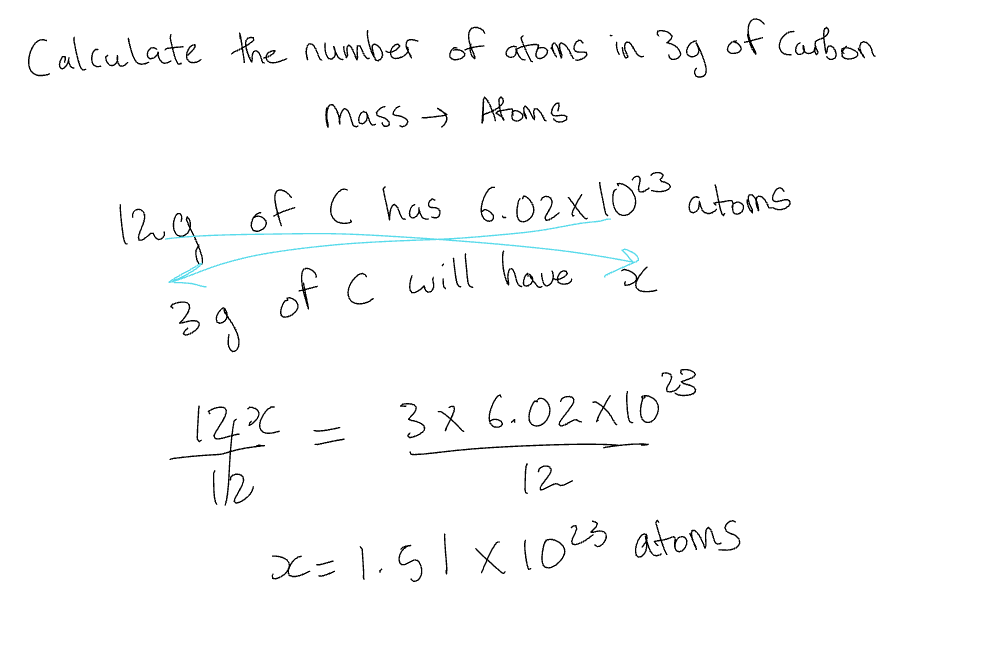 Calculate the number of atoms in 3g of Carbon
mass → Atoms
12g of C has 6.02x10²³ atoms
3g of C will have x
12x/12 = 3 x 6.02x10²³/12
x = 1.51 x 10²³ atoms